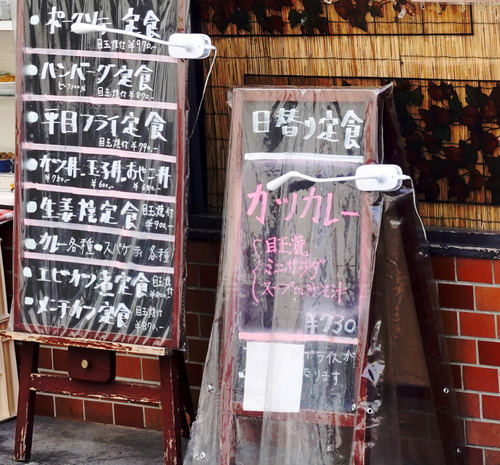 ポークソテー定食
目玉焼付 ¥970.-
ハンバーグ定食
ビーフ100% 目玉焼付 ¥870.-
平目フライ定食
目玉焼付 ¥790.-
カツ丼、玉子丼、おやこ丼
¥780.- ¥600.- ¥680.-
生姜焼定食 目玉焼付 ¥900.-
カレー各種・スパゲティ各種
エビカツ定食 目玉焼付
メンチカツ定食 目玉焼付 ¥870.-
日替り定食
カツカレー
目玉焼
ミニサラダ
スープ or みそ汁
¥730
ライスが
ります